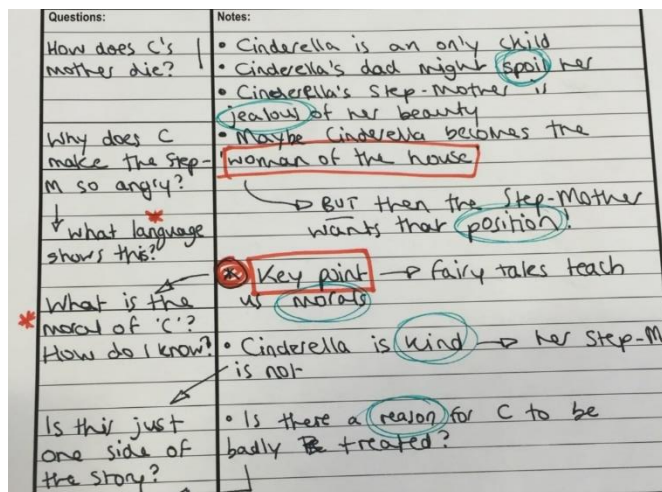 Questions:
How does C's
mother die?
Why does C
make the Step-
M so angry?
what language
shows this?
What is the
moral of 'C'?
How do I know?
Is this just
one side of
the story?
Notes:
• Cinderella is an only child
• Cinderella's dad might spoil her
• Cinderella's Step-Mother is
jealous of her beauty
• Maybe Cinderella becomes the
'woman of the house'
BUT then the Step-Mother
wants that position!
* Key point → fairy tales teach
us morals
• Cinderella is kind → her Step-M
is not
• Is there a reason for C to be
badly treated?